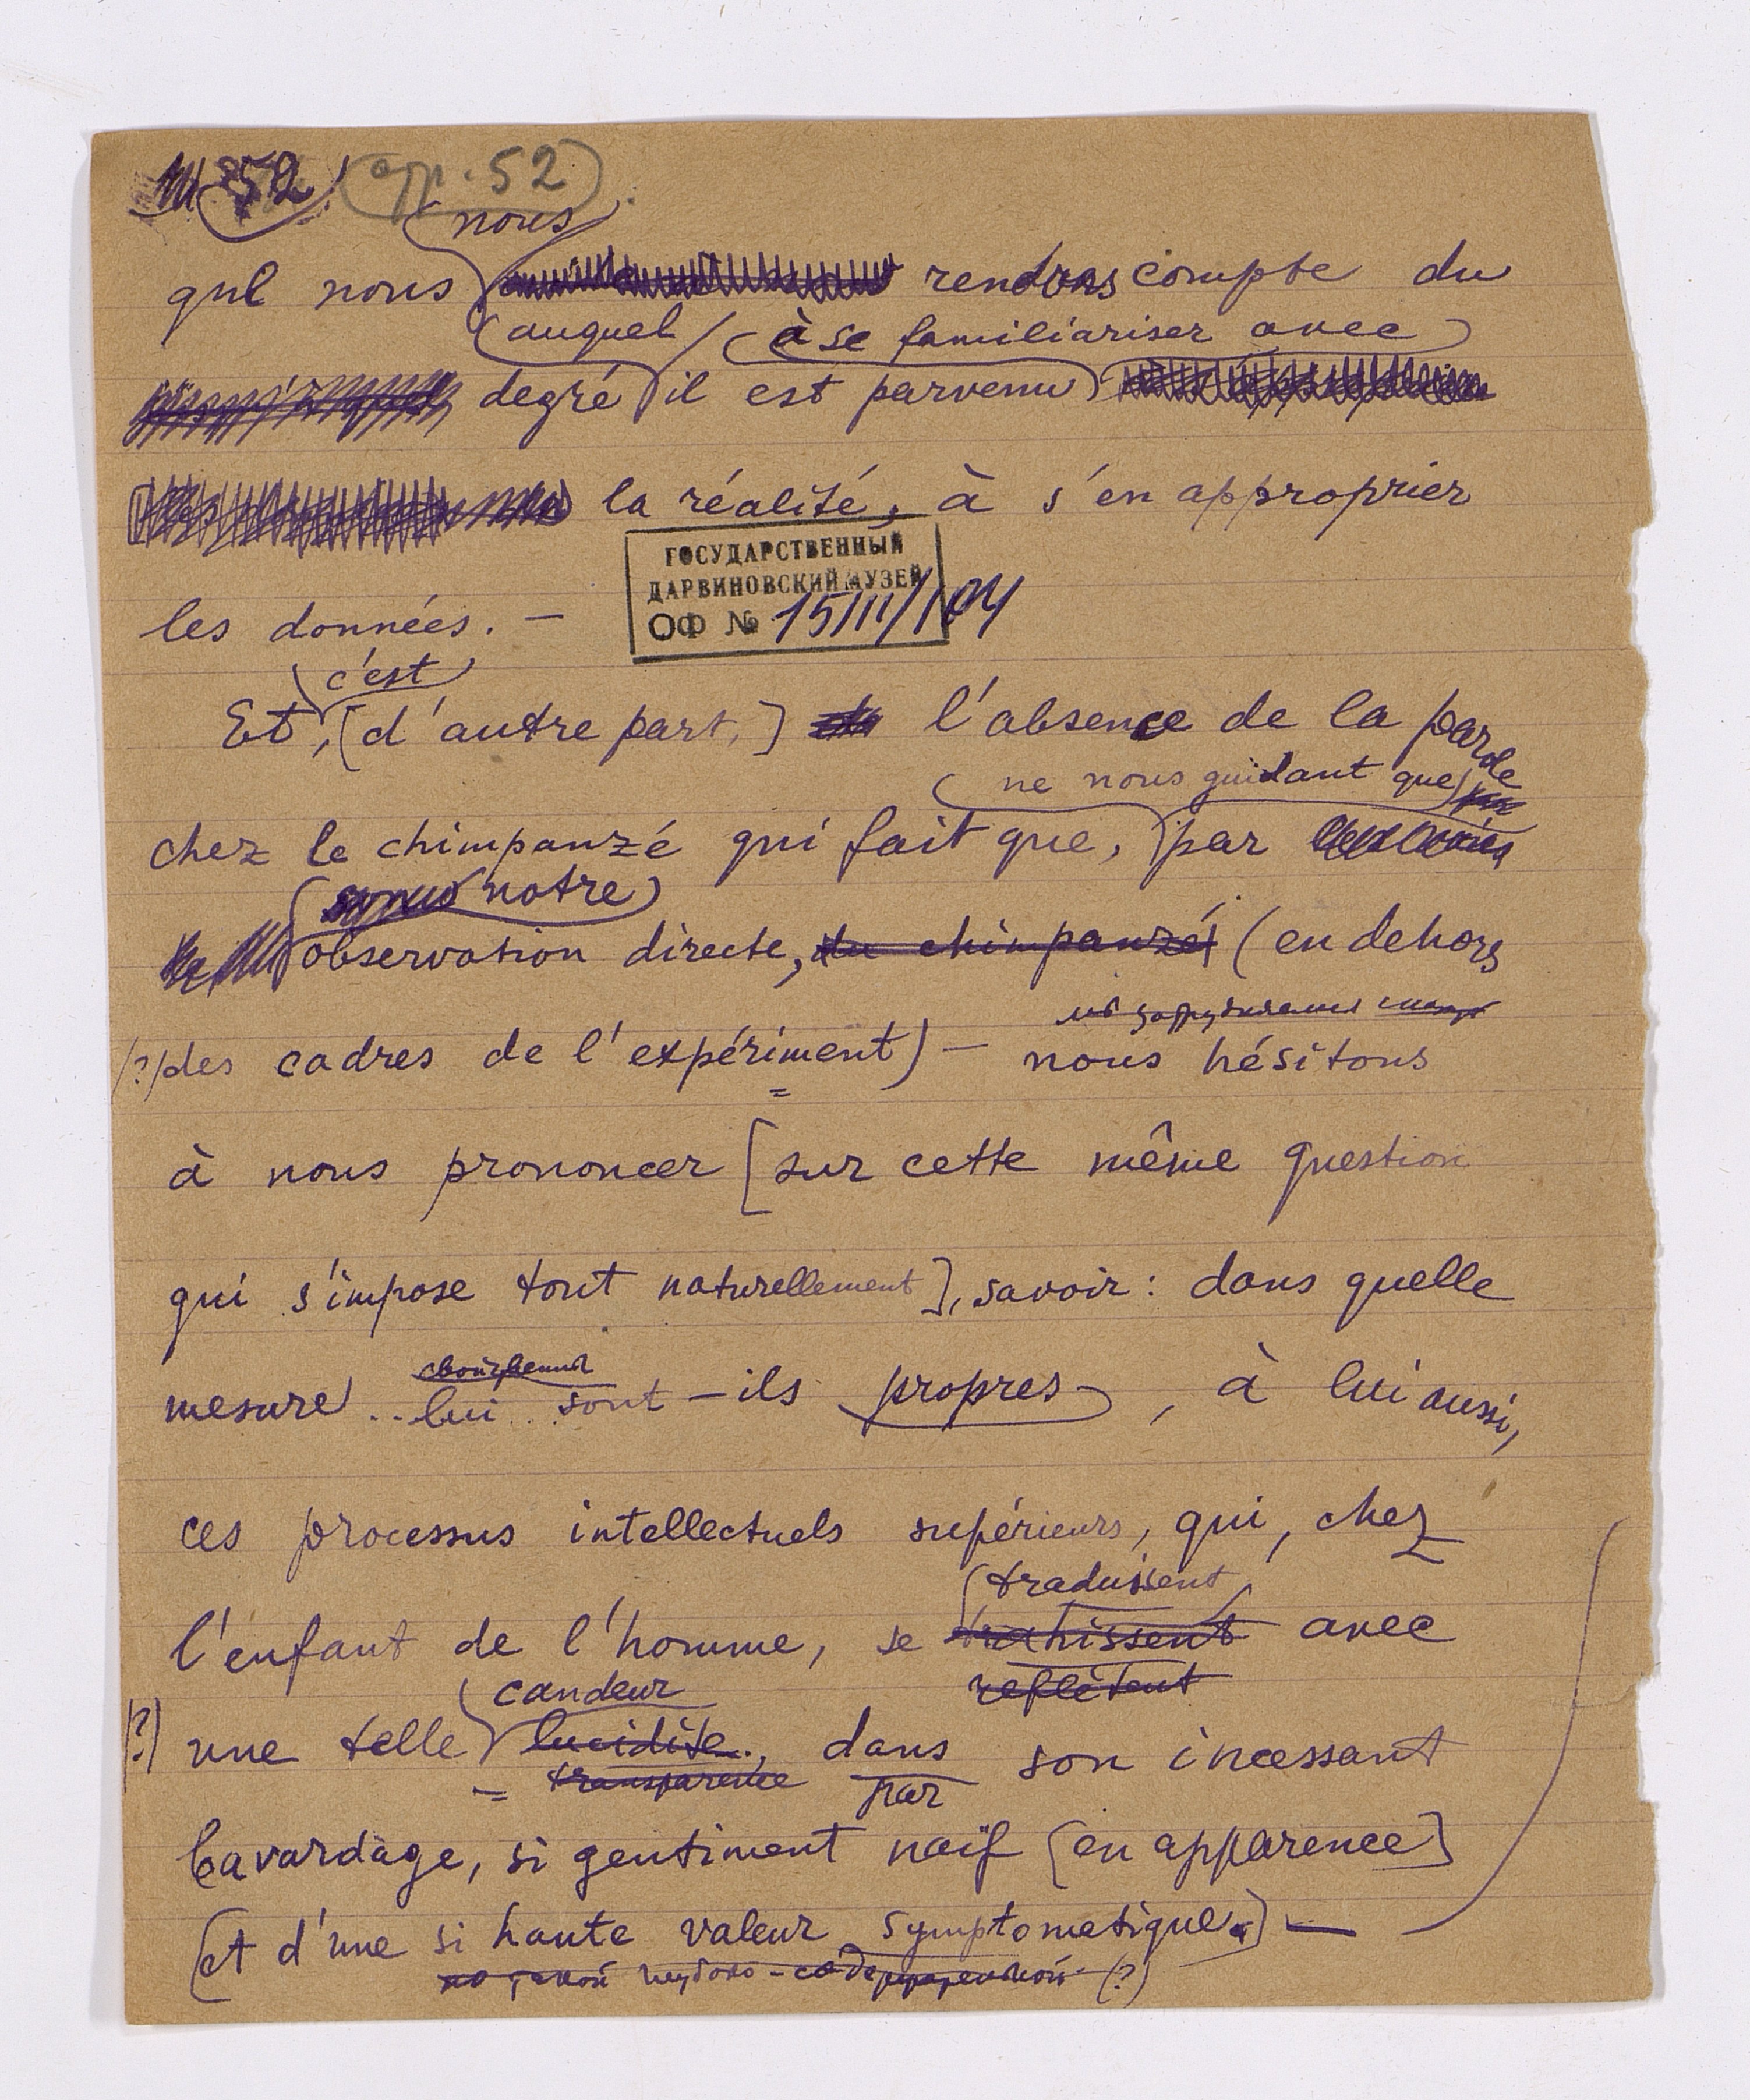 52 стр. 52
nous
que nous rendons compte du
auquel à se familiariser avec
degré il est parvenu
la réalité, à s'en approprier
ГОСУДАРСТВЕННЫЙ
ДАРВИНОВСКИЙ МУЗЕЙ
les données. —
ОФ № 15111/104
c'est
Et, [d'autre part,] l'absence de la parole
ne nous guidant que
chez le chimpanzé qui fait que, par
notre
observation directe, du chimpanzé (en dehors
(?) des cadres de l'expériment) — nous hésitons
à nous prononcer [sur cette même question
qui s'impose tout naturellement], savoir: dans quelle
свойственны
mesure .. lui .. sont-ils propres, à lui aussi,
ces processus intellectuels supérieurs, qui, chez
traduisent
l'enfant de l'homme, se trahissent avec
candeur reflètent
(?) une telle lucidité, dans son incessant
= transparence par
bavardage, si gentiment naïf [en apparence]
[et d'une si haute valeur symptomatique] —
но такой глубоко-содержательной (?)